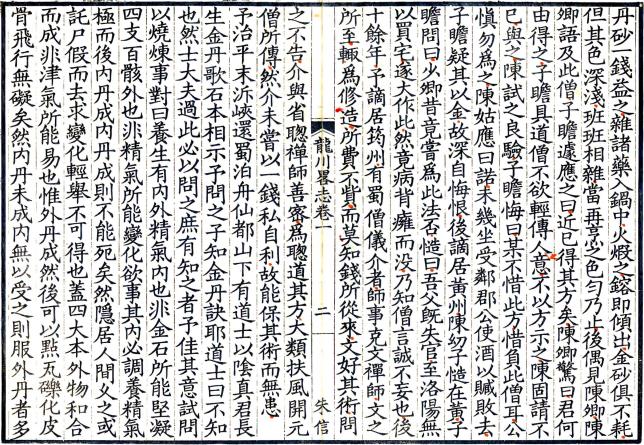 丹砂一錢益之雜諸藥入鍋中火煆之鎔即傾出金砂俱不耗
但其色深淺班班相雜當再烹之色勻乃止後偶見陳卿陳
卿語及此僧子瞻遽應之曰近已得其方矣陳卿驚曰君何
由得之子瞻具道僧不欲輕傳人意不以方示之陳固請不
已與之陳試之良驗子瞻悔曰某不惜此方惜負此僧耳公
慎勿為之陳姑應曰諾未幾坐受鄰郡公使酒以贓敗去
子瞻疑其以金故深自悔恨後謫居黃州陳幼子慥在黃子
瞻問曰少卿昔竟嘗為此法否慥曰吾父旣失官至洛陽無
以買宅遂大作此然竟病背癰而沒乃知僧言誠不妄也後
十餘年予謫居筠州有蜀僧儀介者師事克文禪師文之
所至輒為修造所費不貲而莫知錢所從來文好其術問
龍川畧志卷一
二
朱信
之不告介與省聰禪師善密為聰道其方大類扶風開元
僧所傳然介未嘗以一錢私自利故能保其術而無患
予治平末泝峽還蜀泊舟仙都山下有道士以陰真君長
生金丹歌石本相示予問之子知金丹訣耶道士曰不知
也然士大夫過此必以問之庶有知之者予佳其意試問
以燒煉事對曰養生有內外精氣內也非金石所能堅凝
四支百骸外也非精氣所能變化欲事其內必調養精氣
極而後內丹成內丹成則不能死矣然隱居人閒久之或
託尸假而去求變化輕舉不可得也蓋四大本外物和合
而成非津氣所能易也惟外丹成然後可以點瓦礫化皮
骨飛行無礙矣然內丹未成內無以受之則服外丹者多